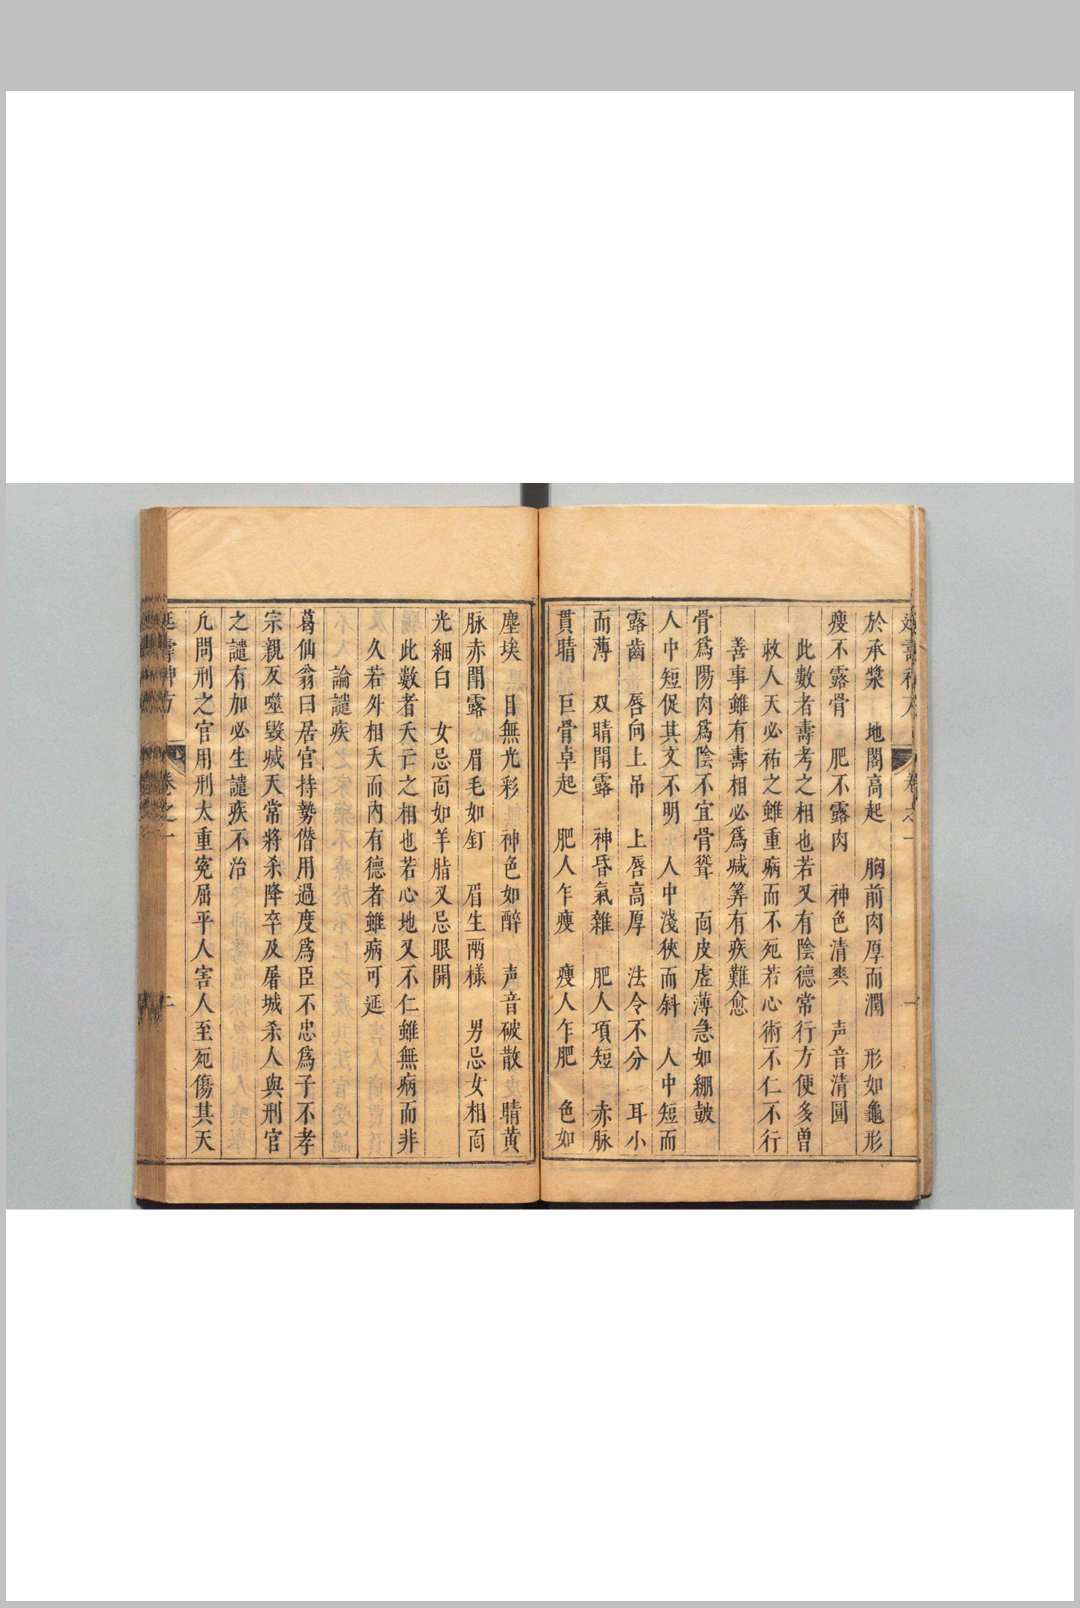 於承漿　地閣高起　胸前肉厚而潤　形如龜形
瘦不露骨　肥不露肉　神色清爽　声音清圓
此數者壽考之相也若又有陰德常行方便多曽
救人天必祐之雖重病而不死若心術不仁不行
善事雖有壽相必爲減筭有疾難愈
骨爲陽肉爲陰不宜骨聳　面皮虛薄急如綳皷
人中短促其文不明　人中淺狹而斜　人中短而
露齒　唇向上吊　上唇高厚　法令不分　耳小
而薄　双睛閗露　神昏氣雜　肥人項短　赤脉
貫睛　巨骨卓起　肥人乍瘦　瘦人乍肥　色如
塵埃　目無光彩　神色如醉　声音破散　睛黄
脉赤閗露　眉毛如釘　眉生兩様　男忌女相面
光細白　女忌面如羊脂又忌眼開
此數者夭亡之相也若心地又不仁雖無病而非
久若外相夭而内有德者雖病可延
論譴疾
葛仙翁曰居官持勢僣用過度爲臣不忠爲子不孝
宗親反噬毀烕天常將杀降卒及屠城杀人與刑官
之譴有加必生譴疾不治
凢問刑之官用刑太重冤屈平人害人至死傷其天
延壽神方
卷之一
上